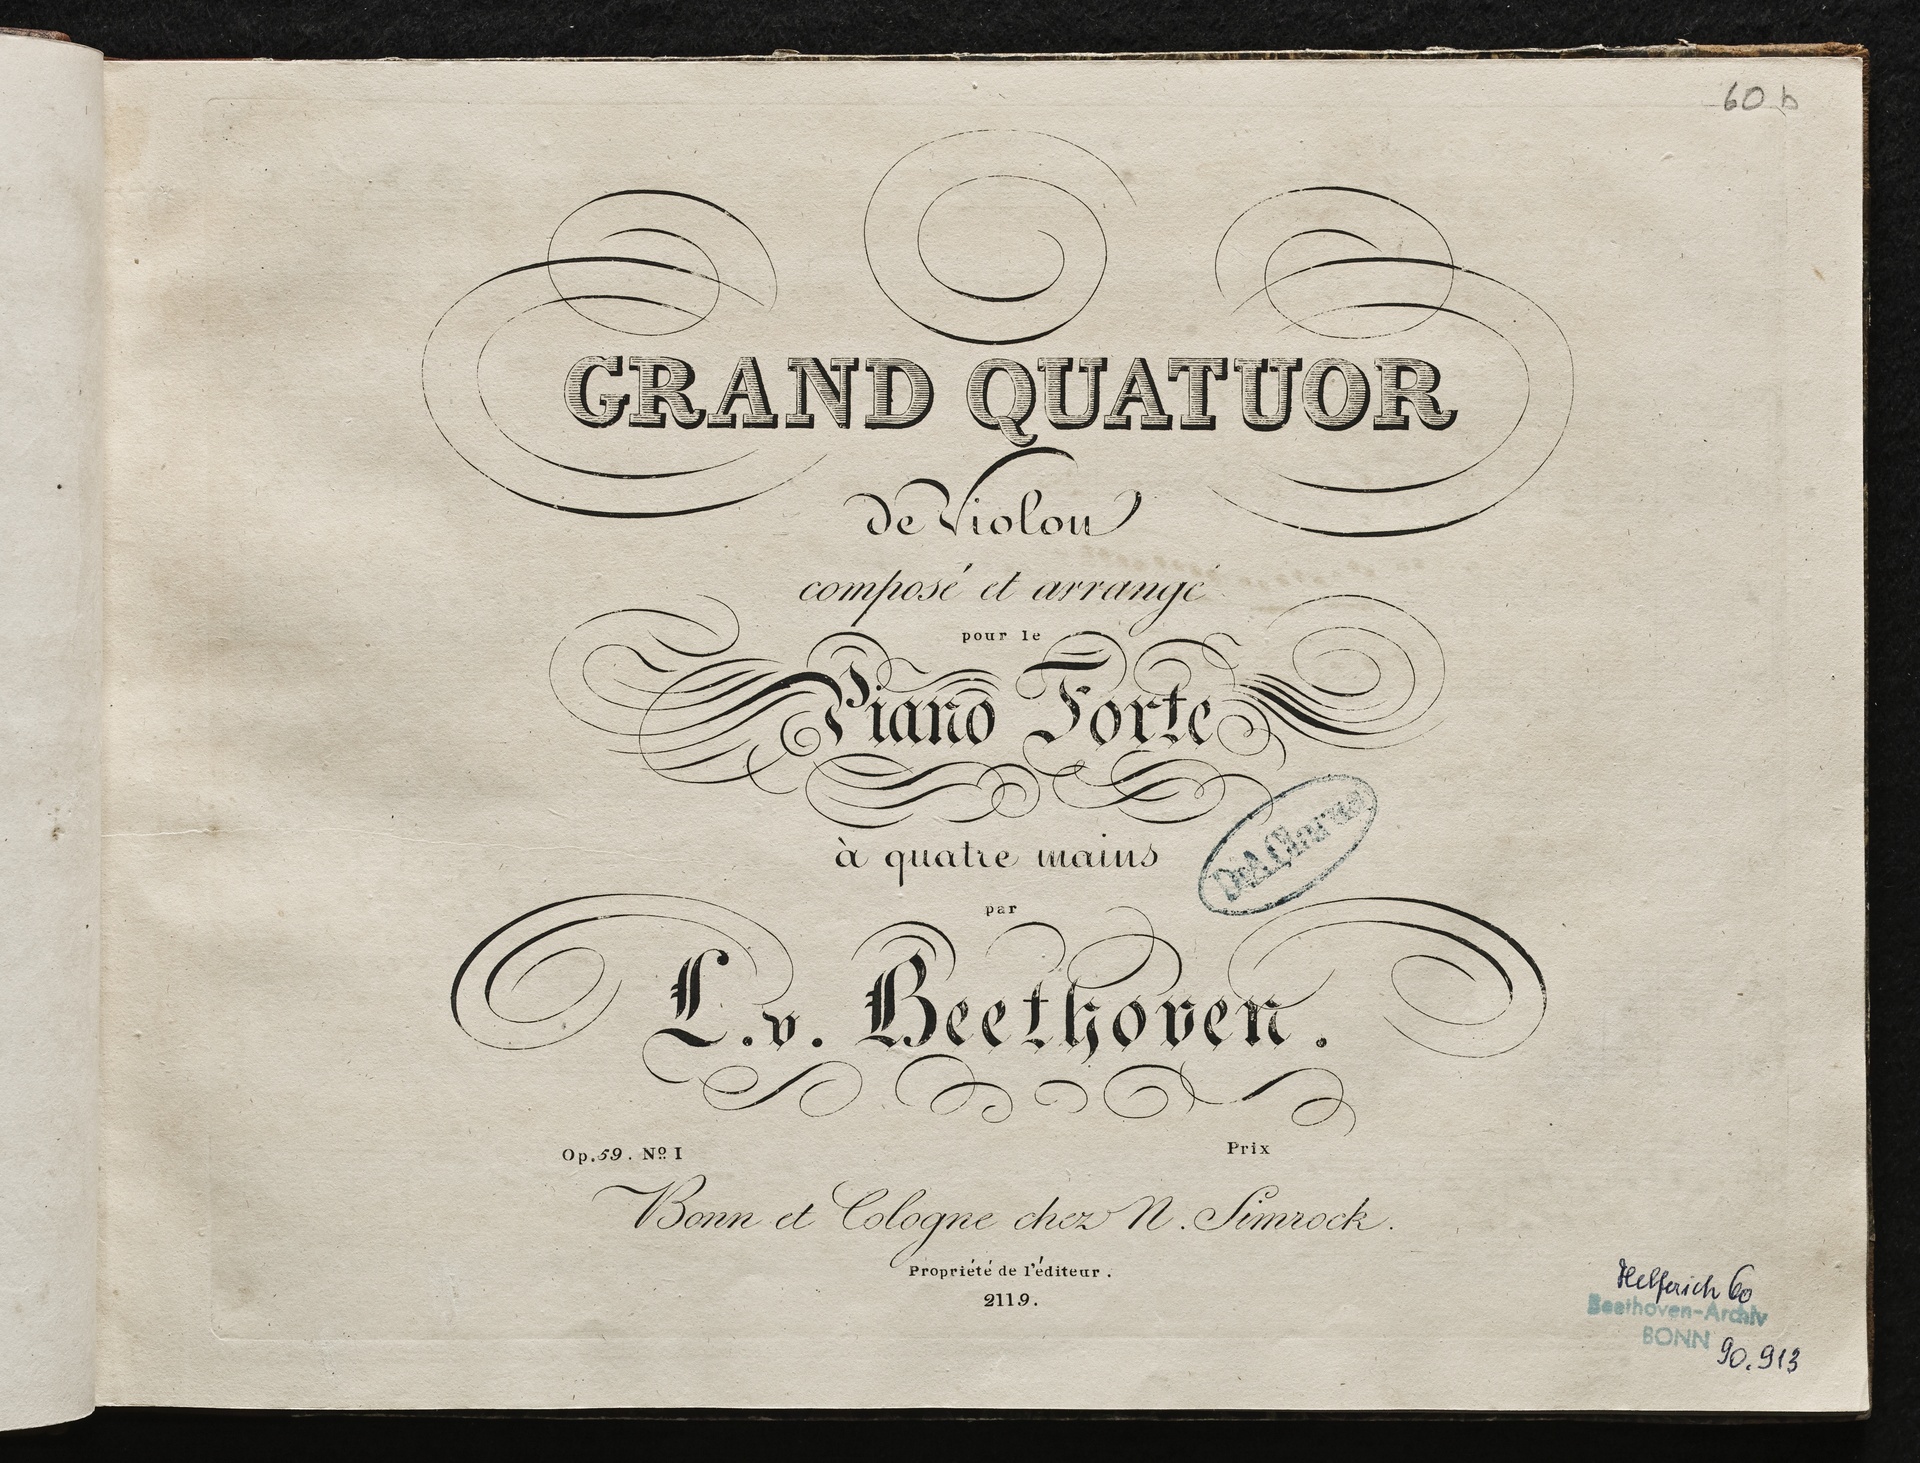 60 b
GRAND QUATUOR
de Violon
composé et arrangé
pour le
Piano Forte
à quatre mains
par
L. v. Beethoven.
Op. 59. Nº I
Prix
Bonn et Cologne chez N. Simrock.
Propriété de l'éditeur.
2119.
Helferich 60
Beethoven-Archiv
BONN
90.913